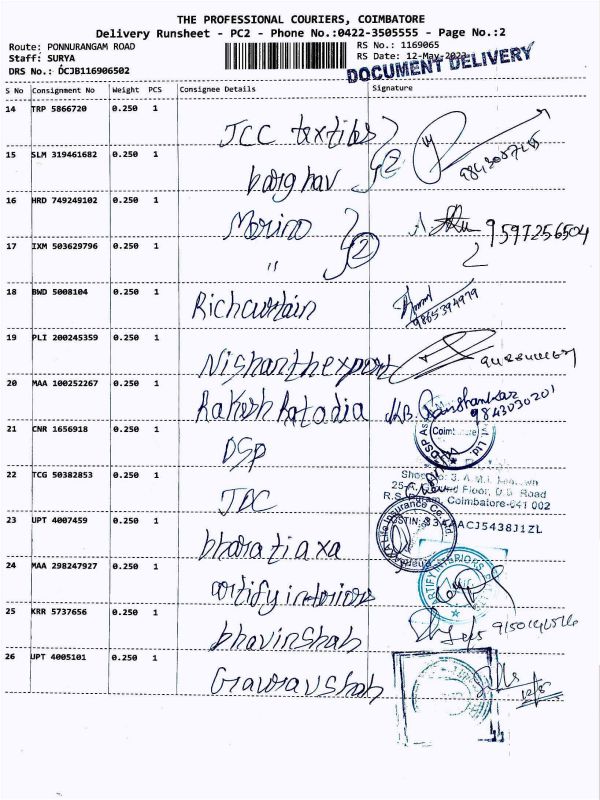 THE PROFESSIONAL COURIERS, COIMBATORE
Delivery Runsheet - PC2 - Phone No.:0422-3505555 - Page No.:2
Route: PONNURANGAM ROAD RS No.: 1169065
Staff: SURYA RS Date: 12-May-2023
DRS No.: DCJB116906502
DOCUMENT DELIVERY
S No Consignment No Weight PCS Consignee Details Signature
14 TRP 5866720 0.250 1 JCC textiles
15 SLM 319461682 0.250 1 barghav 2
16 HRD 749249102 0.250 1 Morino 9597256504
17 IXM 503629796 0.250 1 " 2
18 BWD 5008104 0.250 1 Richcurtain 9865394979
19 PLI 200245359 0.250 1 Nishanthexport
20 MAA 100252267 0.250 1 Rakesh Ratadia 9843030201
21 CNR 1656918 0.250 1 DSP
22 TCG 50382853 0.250 1 JDC
Floor, D.B. Road
R.S. Coimbatore-641 002
23 UPT 4007459 0.250 1 bharatiaxa
24 MAA 298247927 0.250 1 artifyinteriors
25 KRR 5737656 0.250 1 bhavinshah
26 UPT 4005101 0.250 1 Gauravshah
12/5